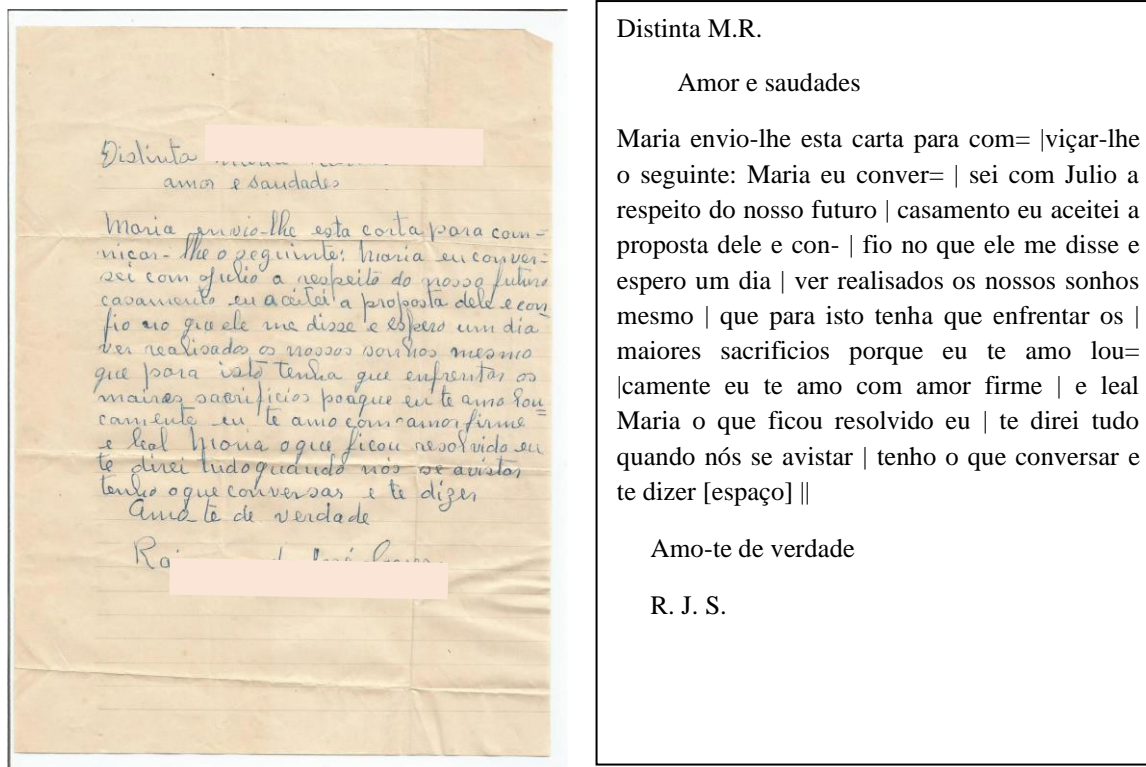 Distinta
amor e saudades
Maria envio-lhe esta carta para com=
niçar-lhe o seguinte: Maria eu conver=
sei com Julio a respeito do nosso futuro
casamento eu aceitei a proposta dele e con
fio no que ele me disse e espero um dia
ver realisados os nossos sonhos mesmo
que para isto tenha que enfrentar os
maires sacrificios porque eu te amo lou=
camente eu te amo com amor firme
e leal Maria o que ficou resolvido eu
te direi tudo quando nós se avistar
tenho o que conversar e te dizer
Amo-te de verdade
Distinta M.R.
Amor e saudades
Maria envio-lhe esta carta para com= |viçar-lhe
o seguinte: Maria eu conver= | sei com Julio a
respeito do nosso futuro | casamento eu aceitei a
proposta dele e con- | fio no que ele me disse e
espero um dia | ver realisados os nossos sonhos
mesmo | que para isto tenha que enfrentar os |
maiores sacrificios porque eu te amo lou=
|camente eu te amo com amor firme | e leal
Maria o que ficou resolvido eu | te direi tudo
quando nós se avistar | tenho o que conversar e
te dizer [espaço] ||
Amo-te de verdade
R. J. S.